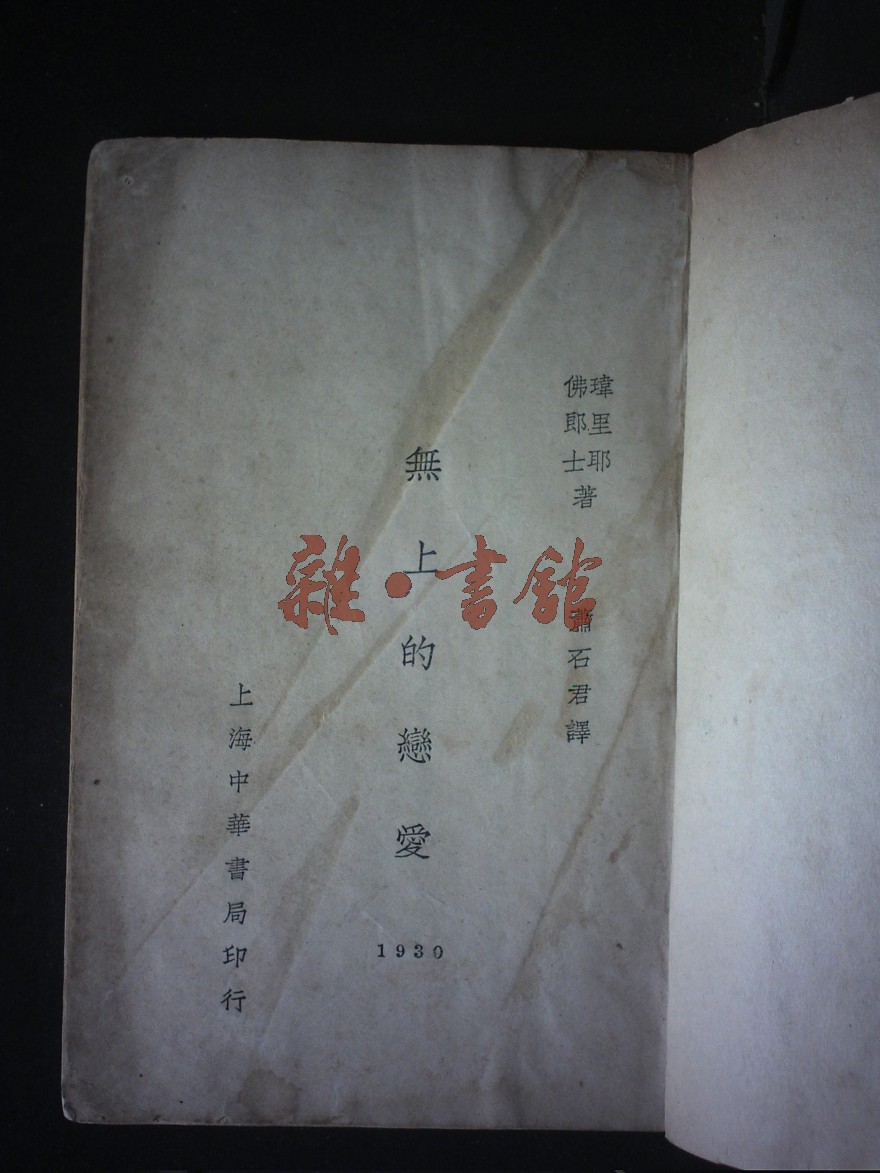 瑋里耶
佛郎士著
蕭石君譯
無上的戀愛
1930
上海中華書局印行
雜·書館